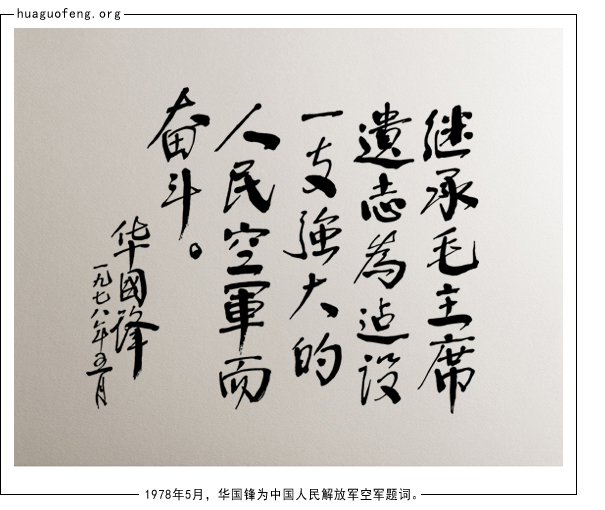 huaguofeng.org
继承毛主席
遺志為迠设
一支強大的
人民空軍而
奋斗。
华國锋
一九七八年五月
1978年5月，华国锋为中国人民解放军空军题词。